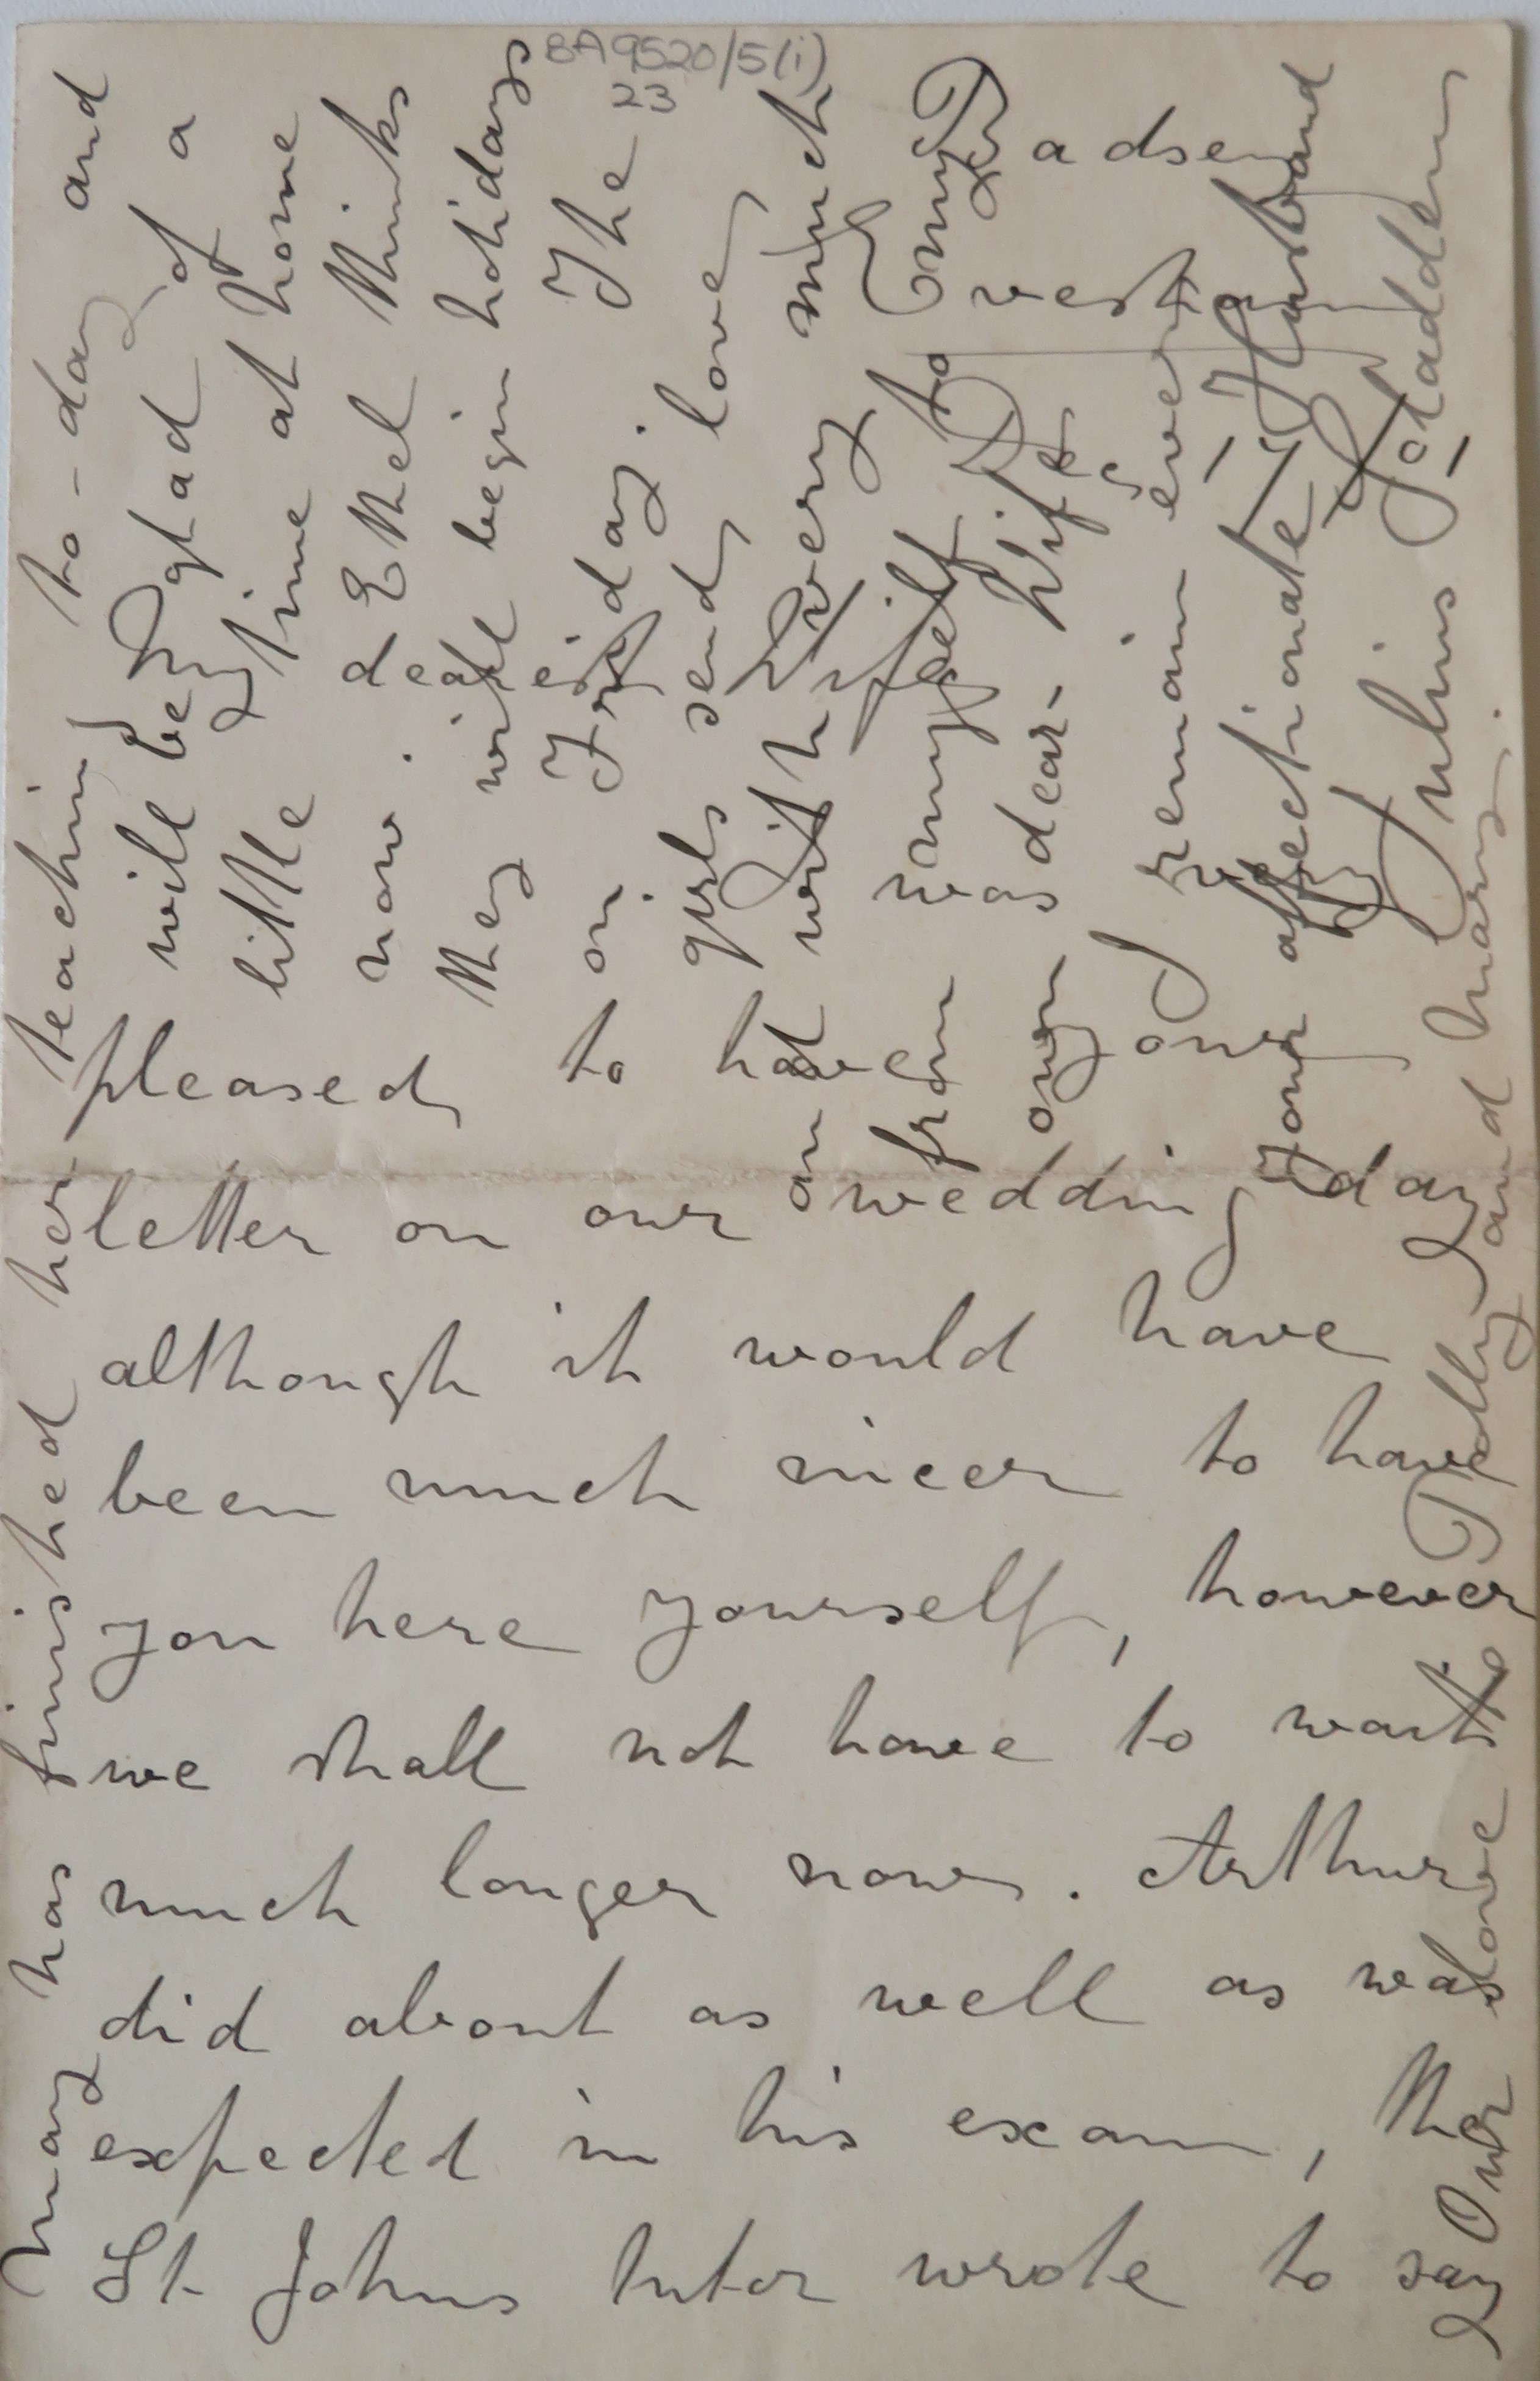 BA 9520/5(i)
23
Badsey
Evesham
My dearest Wife
pleased to have your
letter on our wedding day
although it would have
been much nicer to have
you here yourself, however
we shall not have to wait
much longer now. Arthur
did about as well as was
expected in his exam, the
St Johns tutor wrote to say
Mary has finished her teaching to-day and
will be glad of a
little time at home
now. Ethel thinks
they will begin holidays
on Friday. The
girls send love
and with very much
from myself to my
own dear Wife
I remain ever
Your affectionate Husband
Julius Sladden
Our love to Polly and Mary.